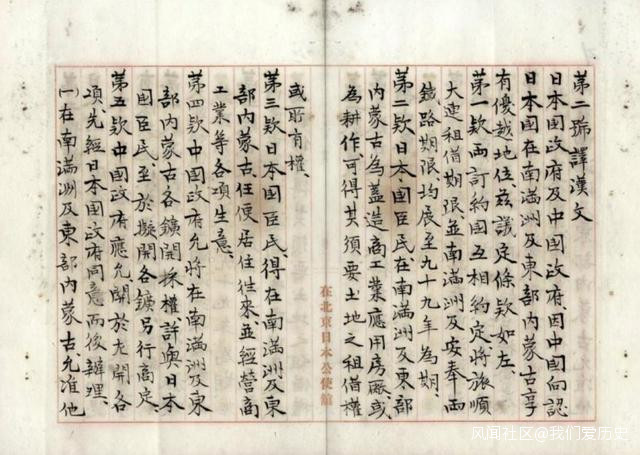 第二號譯漢文
日本國政府及中國政府、因中國向認
日本國在南滿洲及東部內蒙古享
有優越地位、茲議定條欵如左、
第一欵兩訂約國互相約定將旅順
大連租借期限並南滿洲及安奉兩
鐵路期限均展至九十九年為期、
第二欵日本國臣民在南滿洲及東部
內蒙古為蓋造商工業應用房廠、或
為耕作、可得其須要土地之租借權
在北京日本公使館
或所有權、
第三欵日本國臣民、得在南滿洲及東
部內蒙古任便居住往來並經營商
工業等各項生意、
第四欵中國政府允將在南滿洲及東
部內蒙古各鑛開採權、許與日本
國臣民、至於擬開各鑛另行商定、
第五欵中國政府應允關於左開各
項、先經日本國政府同意而後辦理、
(一)在南滿洲及東部內蒙古、允准他
风闻社区@我们爱历史